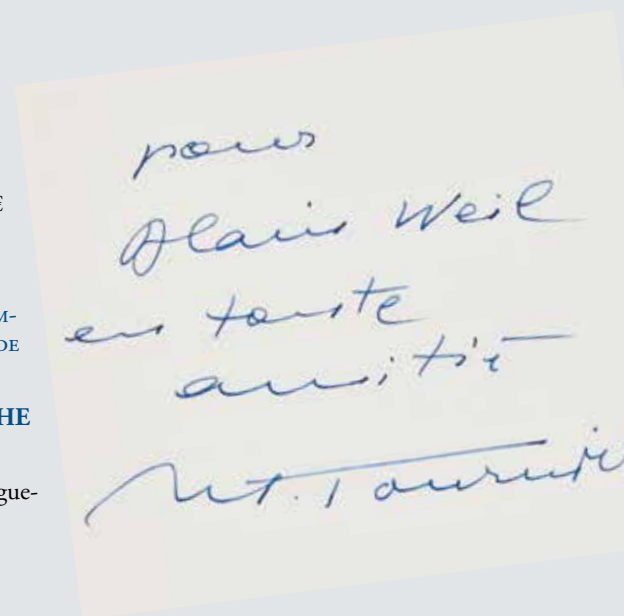 €
M-
DE
HE
gue-
pour
Alain Weil
en toute
amitié
M. Tournier